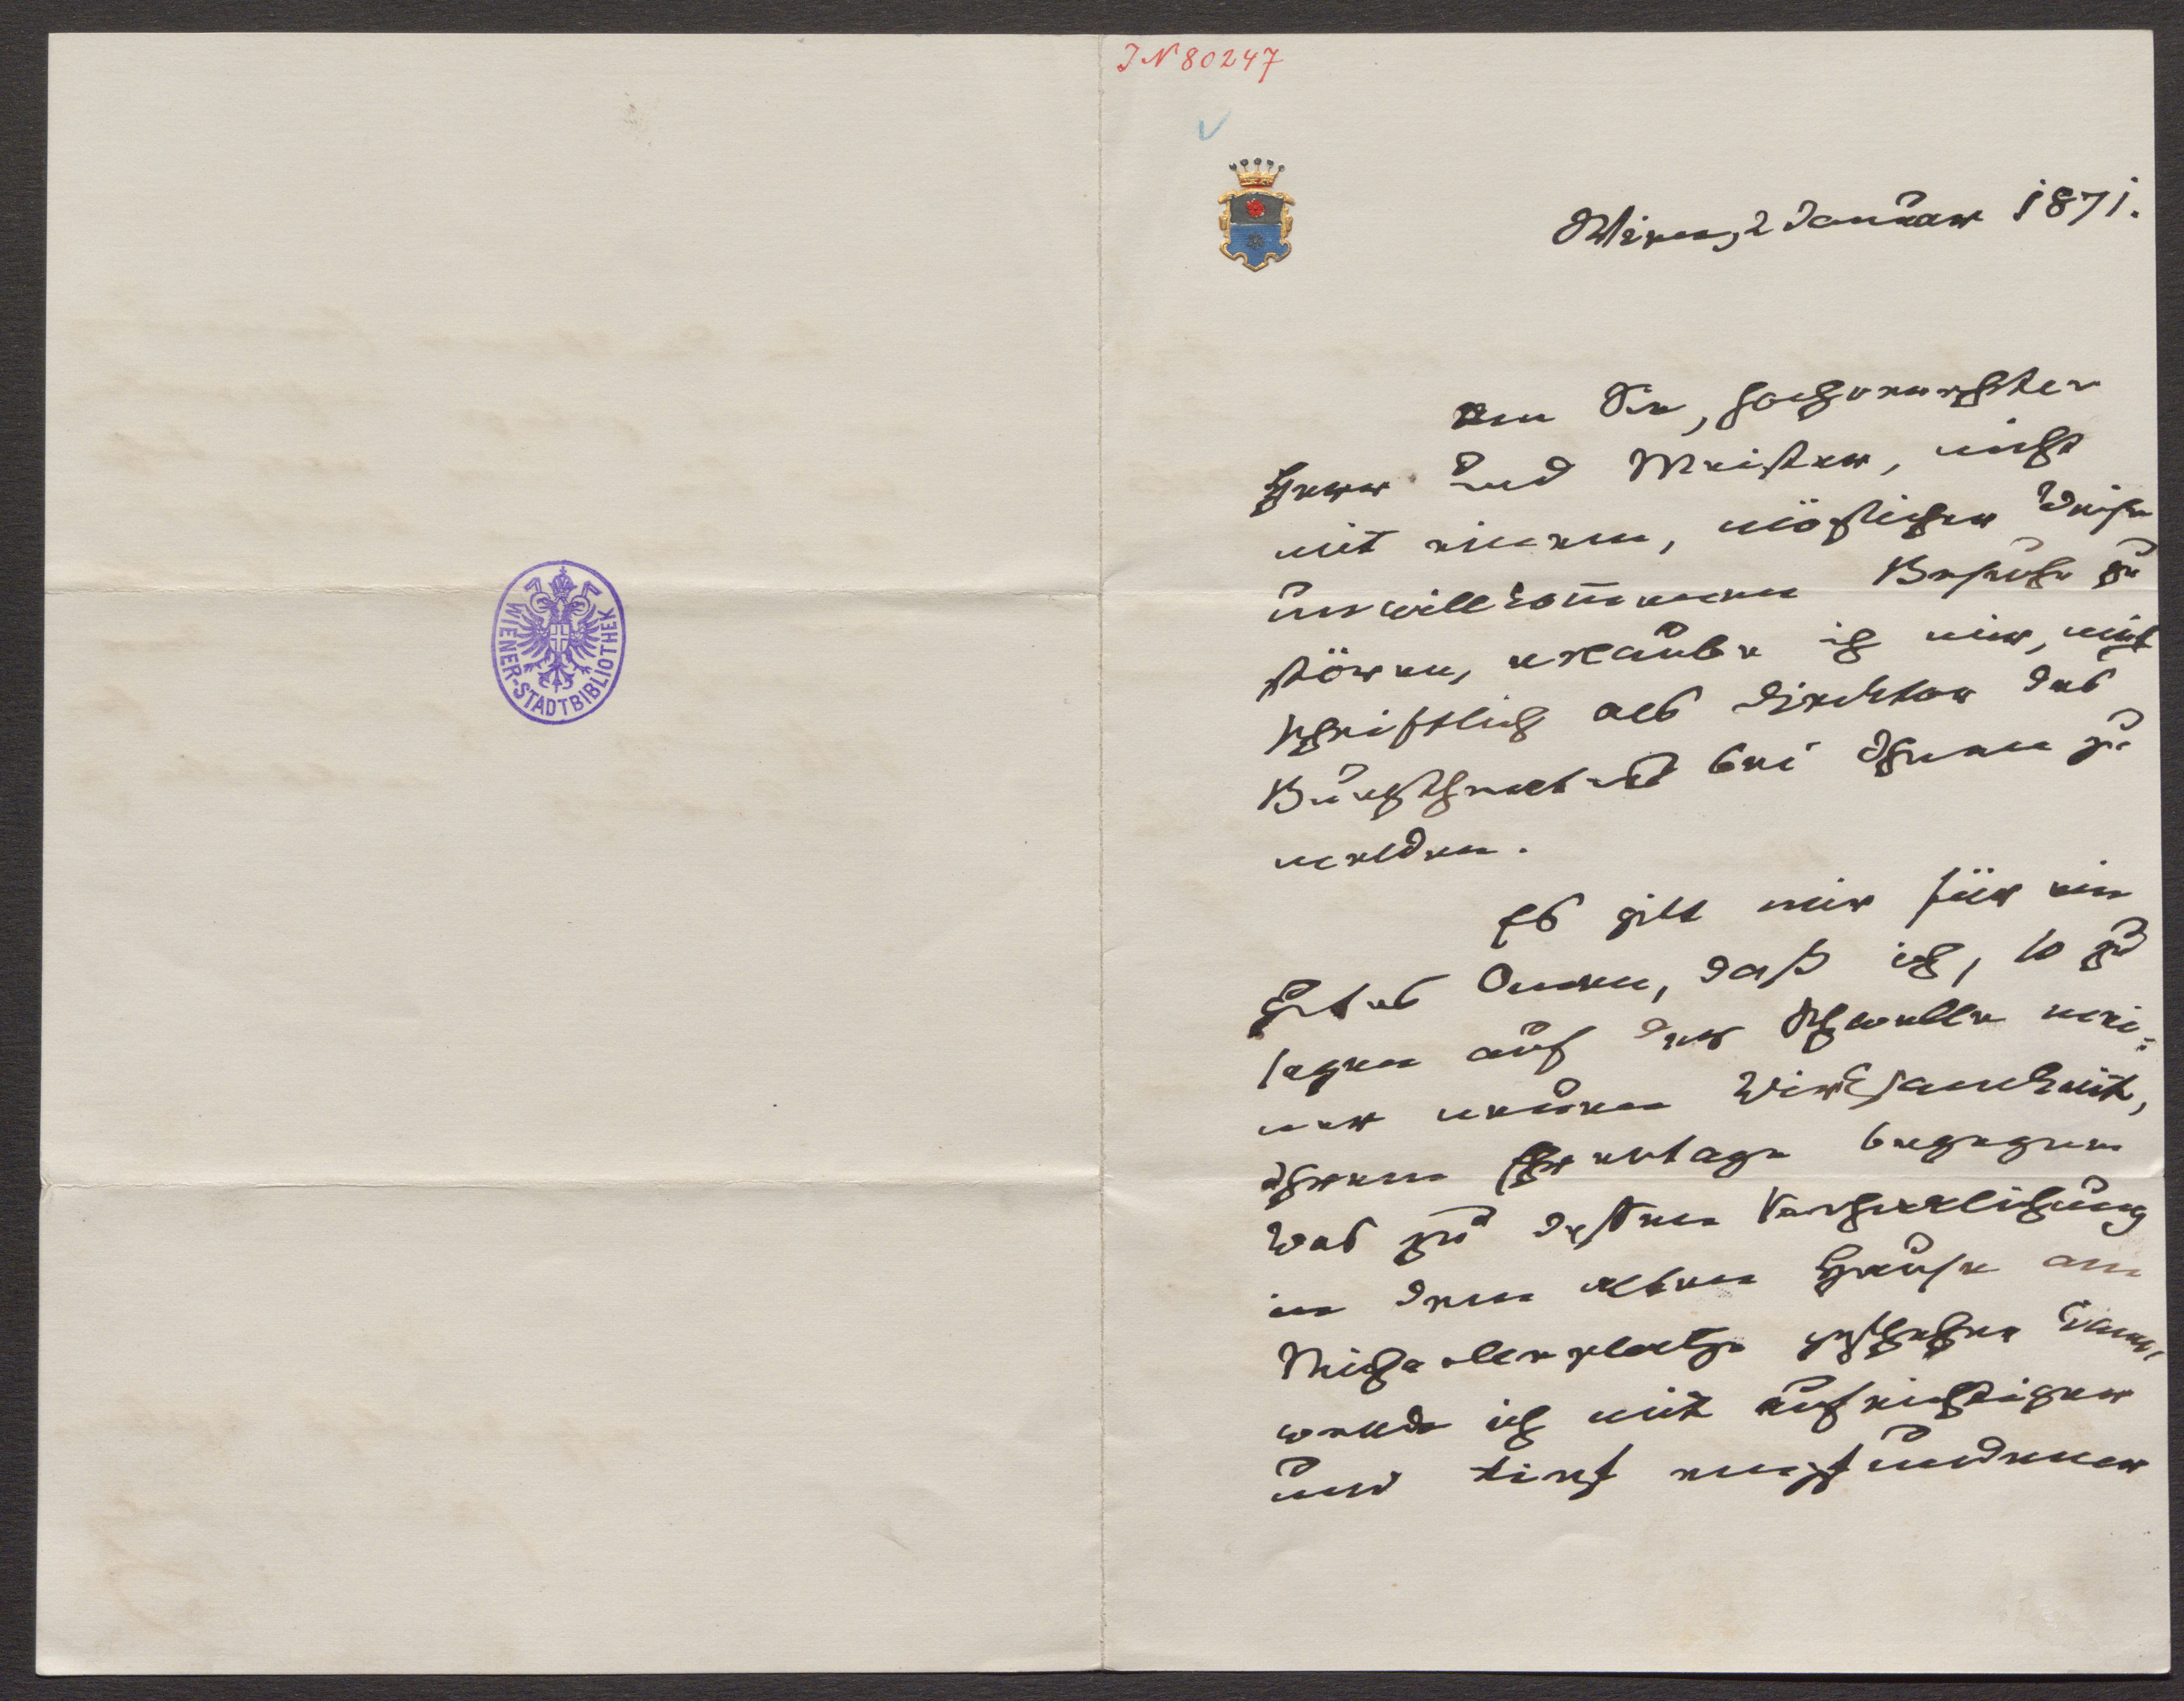 WIENER-STADTBIBLIOTHEK
IN 80247
Wien, 2 Januar 1871.
Um Sie, hochverehrter
Herr und Meister, nicht
mit einem, möglicher Weise
unwillkommenen Besuche zu
stören, erlaube ich mir, mich
schriftlich als Direktor des
Burgtheaters bei Ihnen zu
melden.
Es gilt mir für ein
gutes Omen, daß ich, so zu
sagen auf der Schwelle mei-
ner neuen Wirksamkeit,
Ihrem Ehrentage begegne.
Was zu dessen Verherrlichung
in dem alten Hause am
Michaelerplatze geschehen kann,
werde ich mit aufrichtiger
und tief empfundener